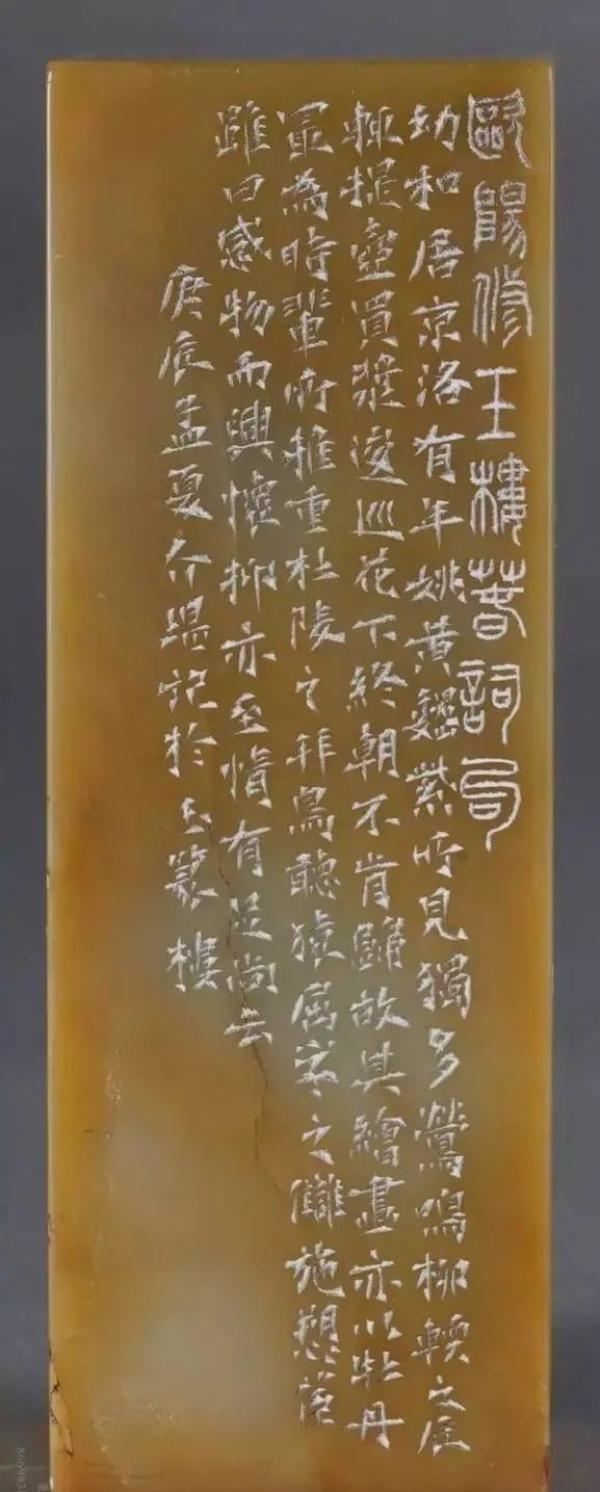 歐陽修玉樓春詞句
幼和居京洛有年姚黃魏紫所見獨多鶯鳴柳輭之
輒提壺買漿逡巡花下終朝不肯歸故其繪畫亦以牡丹
最為時輩所推重杜陵之拜鳥聽猿屈宋之讎施
雖曰感物而興懷抑亦至情有足尚云
庚辰孟夏介堪記於玉篆樓